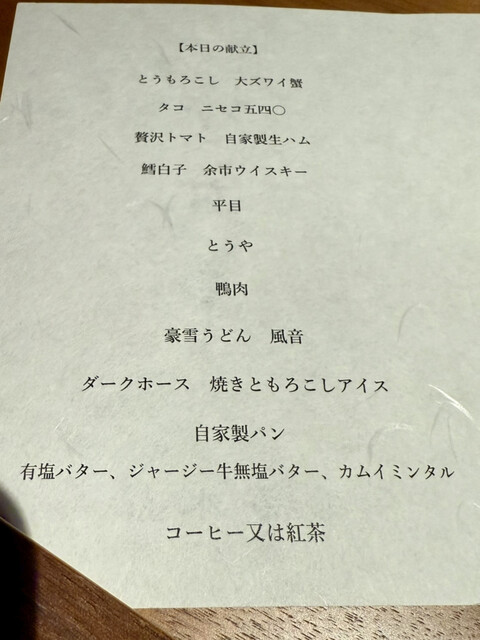 【本日の献立】
とうもろこし　大ズワイ蟹
タコ　ニセコ五四〇
贅沢トマト　自家製生ハム
鱈白子　余市ウイスキー
平目
とうや
鴨肉
豪雪うどん　風音
ダークホース　焼きともろこしアイス
自家製パン
有塩バター、ジャージー牛無塩バター、カムイミンタル
コーヒー又は紅茶